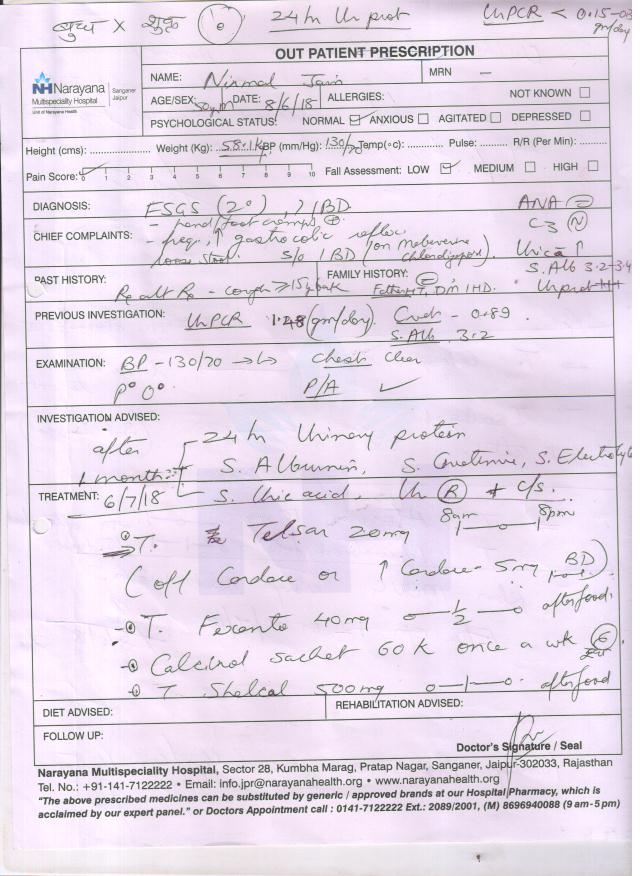 बुध X शुक्र 24 hr Ur prot UrPCR < 0.15-0
gm/day
OUT PATIENT PRESCRIPTION
NH Narayana
Multispeciality Hospital
Unit of Narayana Health
Sanganer
Jaipur
NAME: Nirmal Jain MRN —
AGE/SEX: 50y/M DATE: 8/6/18 ALLERGIES: NOT KNOWN
PSYCHOLOGICAL STATUS: NORMAL ANXIOUS AGITATED DEPRESSED
Height (cms): Weight (Kg): 58.1 kg BP (mm/Hg): 130/70 Temp(°c): Pulse: R/R (Per Min):
Pain Score: 0 1 2 3 4 5 6 7 8 9 10 Fall Assessment: LOW MEDIUM HIGH
DIAGNOSIS: FSGS (2°), ? IBD ANA
CHIEF COMPLAINTS: - hand/foot cramps C3 N
- freq, ↑ gastrocolic reflex
loose stool s/o IBD (on Mebeverine Chlordiazepoxide) Uric a ↑
S. Alb 3.2-3.4
PAST HISTORY: cough ≥ 15y back
FAMILY HISTORY: Father HT, DM, IHD. Ur prot +++
PREVIOUS INVESTIGATION: UrPCR 1.48 (gm/day). Creat - 0.89
S. Alb 3.2
EXAMINATION: BP - 130/70 Chest clear
P° O° P/A ✓
INVESTIGATION ADVISED:
after 24 hr Urinary protein
1 month S. Albumin, S. Creatinine, S. Electrolyte
TREATMENT: 6/7/18 S. Uric acid, Ur R + C/S.
8am 8pm
T. Telsar 20mg 1—0—1
(off Cardace or ↑ Cardace - 5mg BD)
- T. Feronto 40mg 0—1/2—0 after food.
- Calcirol sachet 60K once a wk
- T. Shelcal 500mg 0—1—0 after food
DIET ADVISED: REHABILITATION ADVISED:
FOLLOW UP:
Doctor's Signature / Seal
Narayana Multispeciality Hospital, Sector 28, Kumbha Marag, Pratap Nagar, Sanganer, Jaipur-302033, Rajasthan
Tel. No.: +91-141-7122222 • Email: info.jpr@narayanahealth.org • www.narayanahealth.org
"The above prescribed medicines can be substituted by generic / approved brands at our Hospital Pharmacy, which is
acclaimed by our expert panel." or Doctors Appointment call : 0141-7122222 Ext.: 2089/2001, (M) 8696940088 (9 am-5 pm)